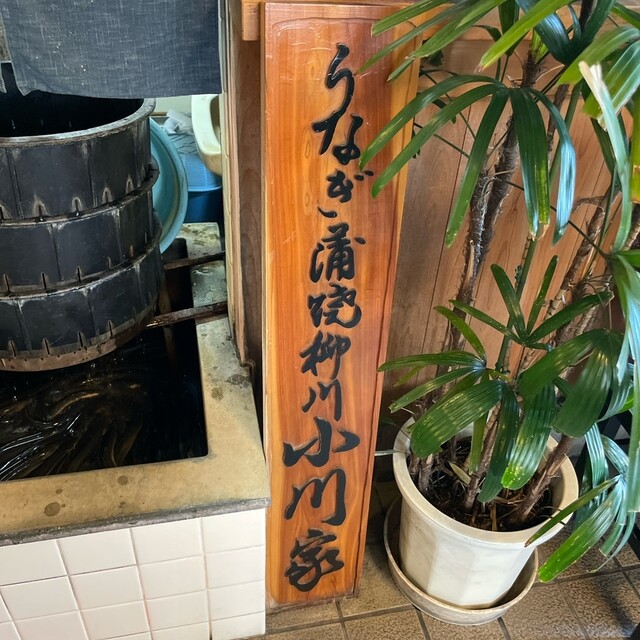 うなぎ蒲焼柳川小川家